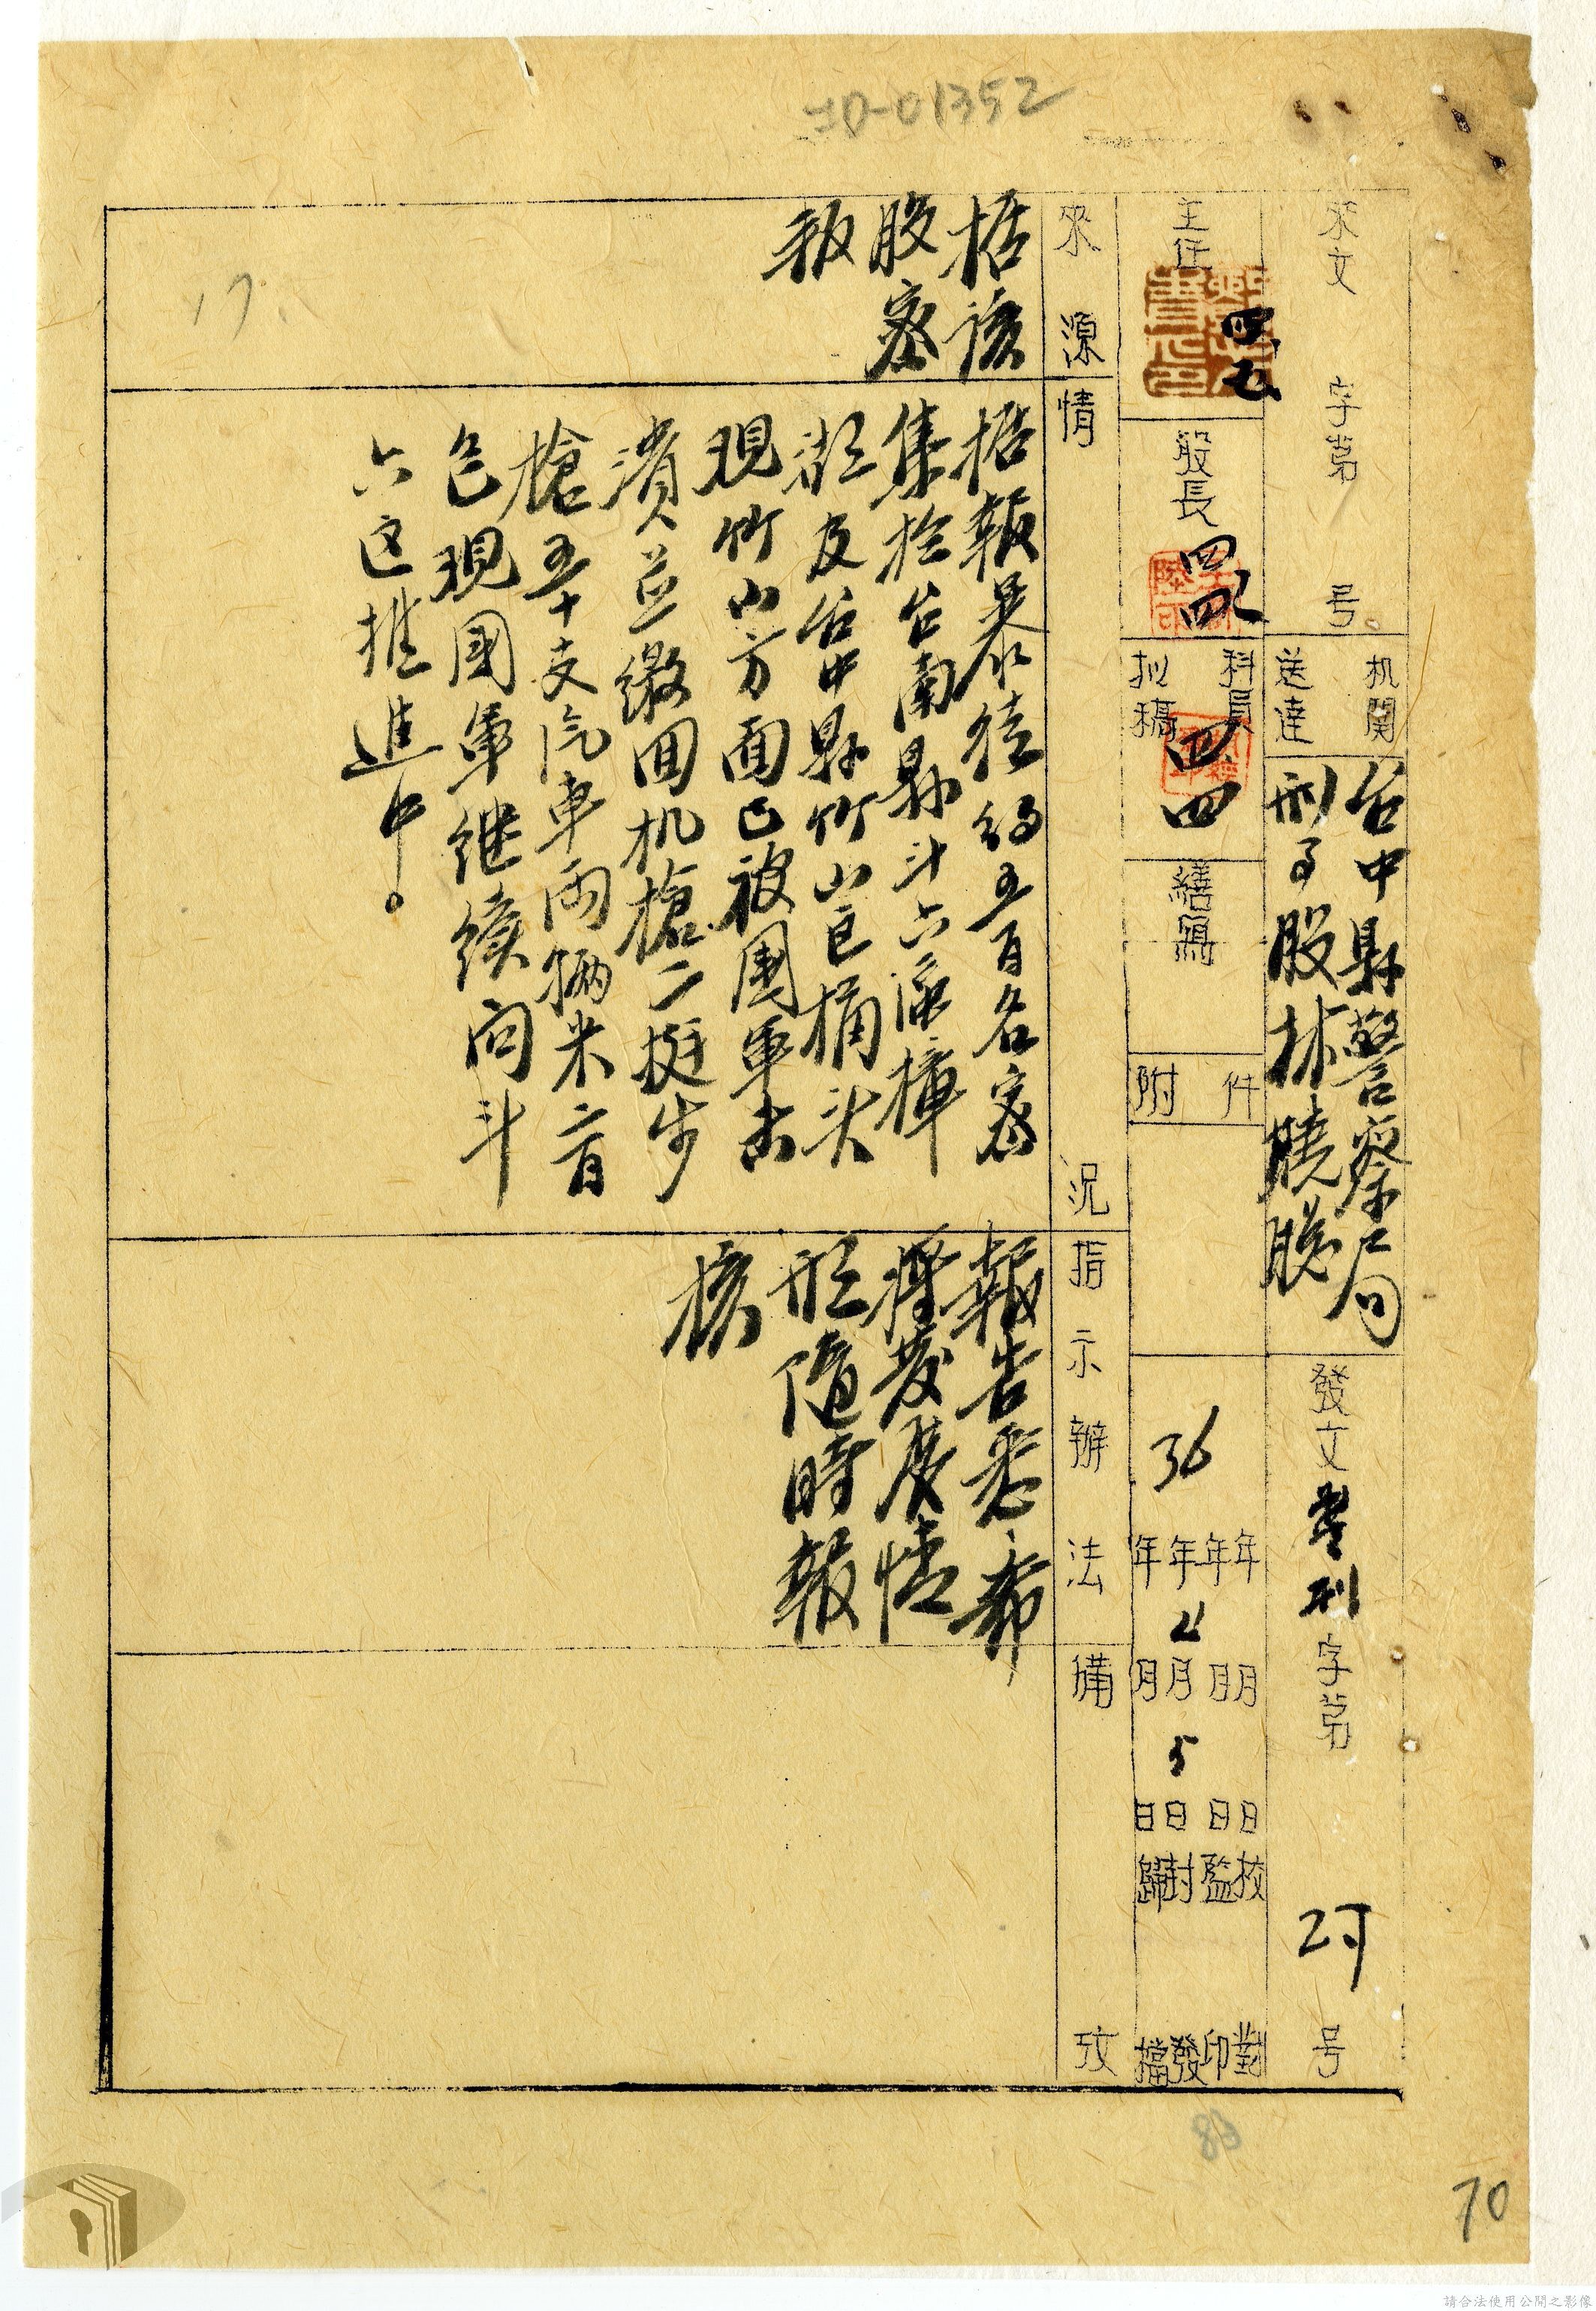 70-01352
來文 字第 号
机關送達
台中縣警察局
刑事股林
發文 刑 字第 号
主任
四五
股長
四四
科員拟稿
四四
繕寫
附件
36
年 年 年 年
4
月 月 月 月
5
日 日 日 日
校對
監印
封發
歸檔
來源
情況
指示辦法
備攷
据該
股密
報
据報暴徒約五百名密
集於台南縣斗六區樟
湖及台中縣竹山区桶头
現竹山方面已被國軍击
潰並繳回机槍二挺步
槍五十支汽車兩辆米二百
包現國軍继續向斗
六区推進中。
報告悉希
将發展情
形随時報
核
17
83
70
請合法使用公開之影像